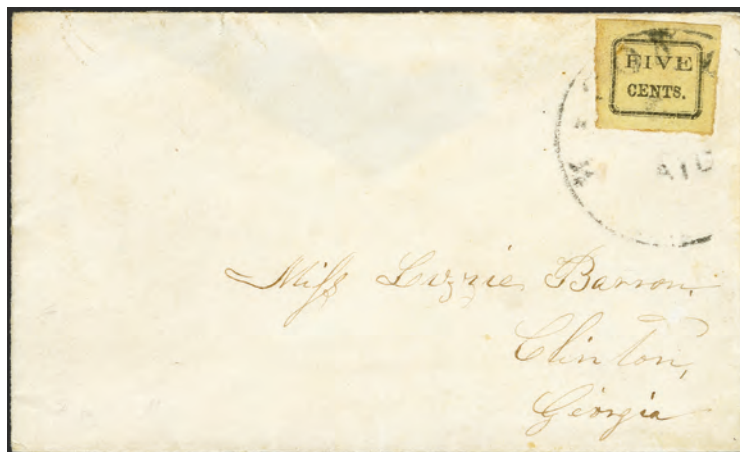 FIVE
CENTS.
Miss Lizzie Barron,
Clinton,
Georgia